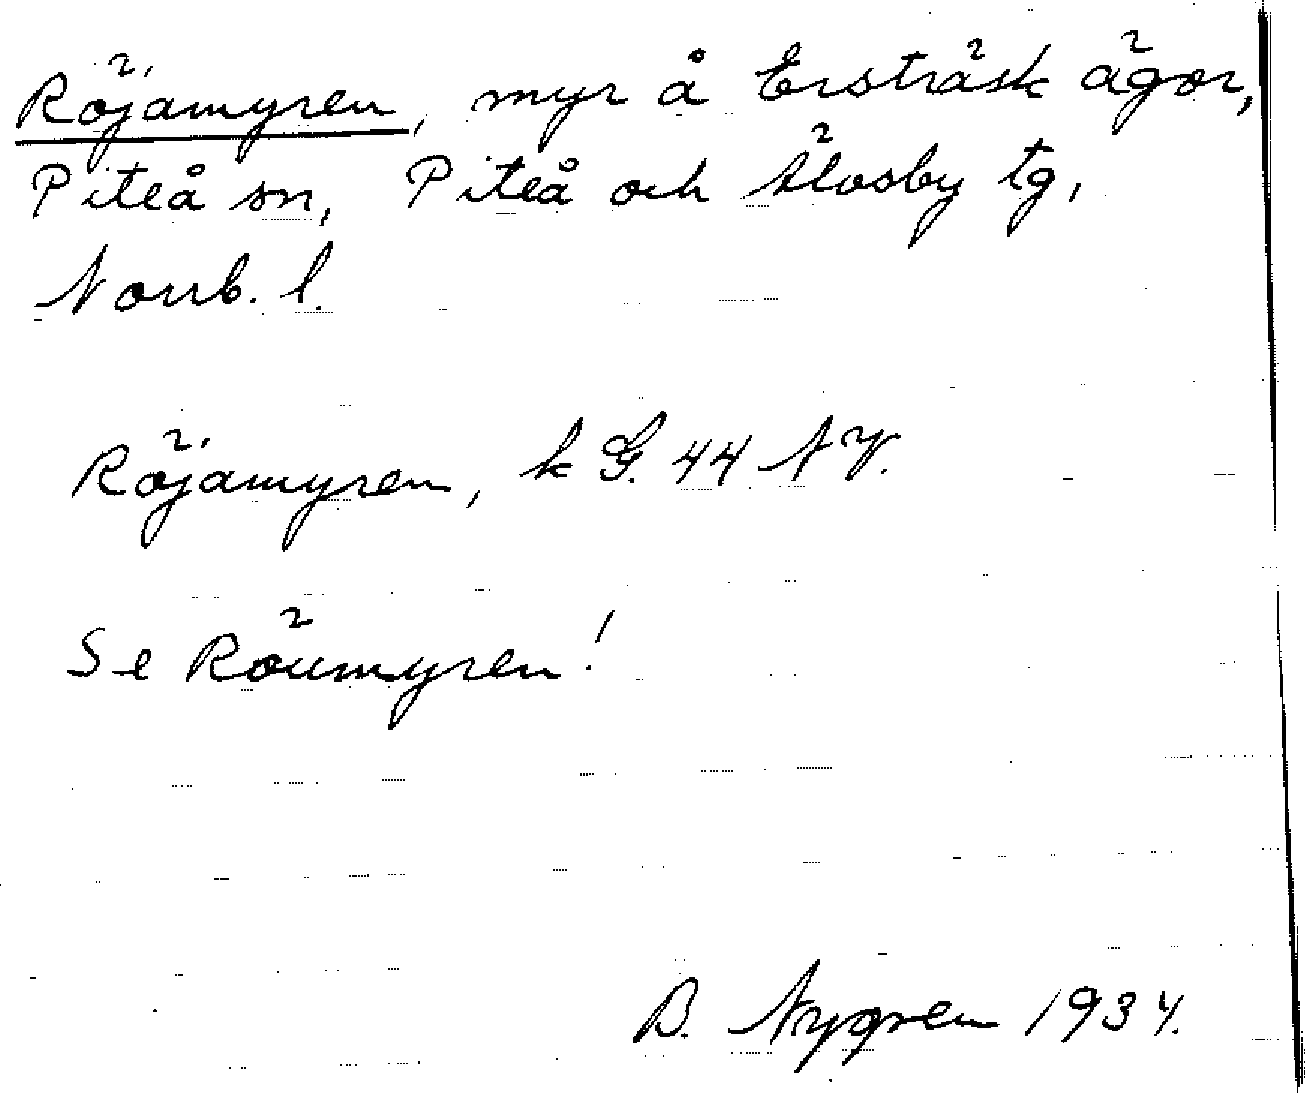 Röjamyren, myr å Ersträsk ägor,
Piteå sn, Piteå och Älvsby tg,
Norrb. l.
Röjamyren, k G. 44 N V.
Se Röumyren!
B. Nygren 1934.